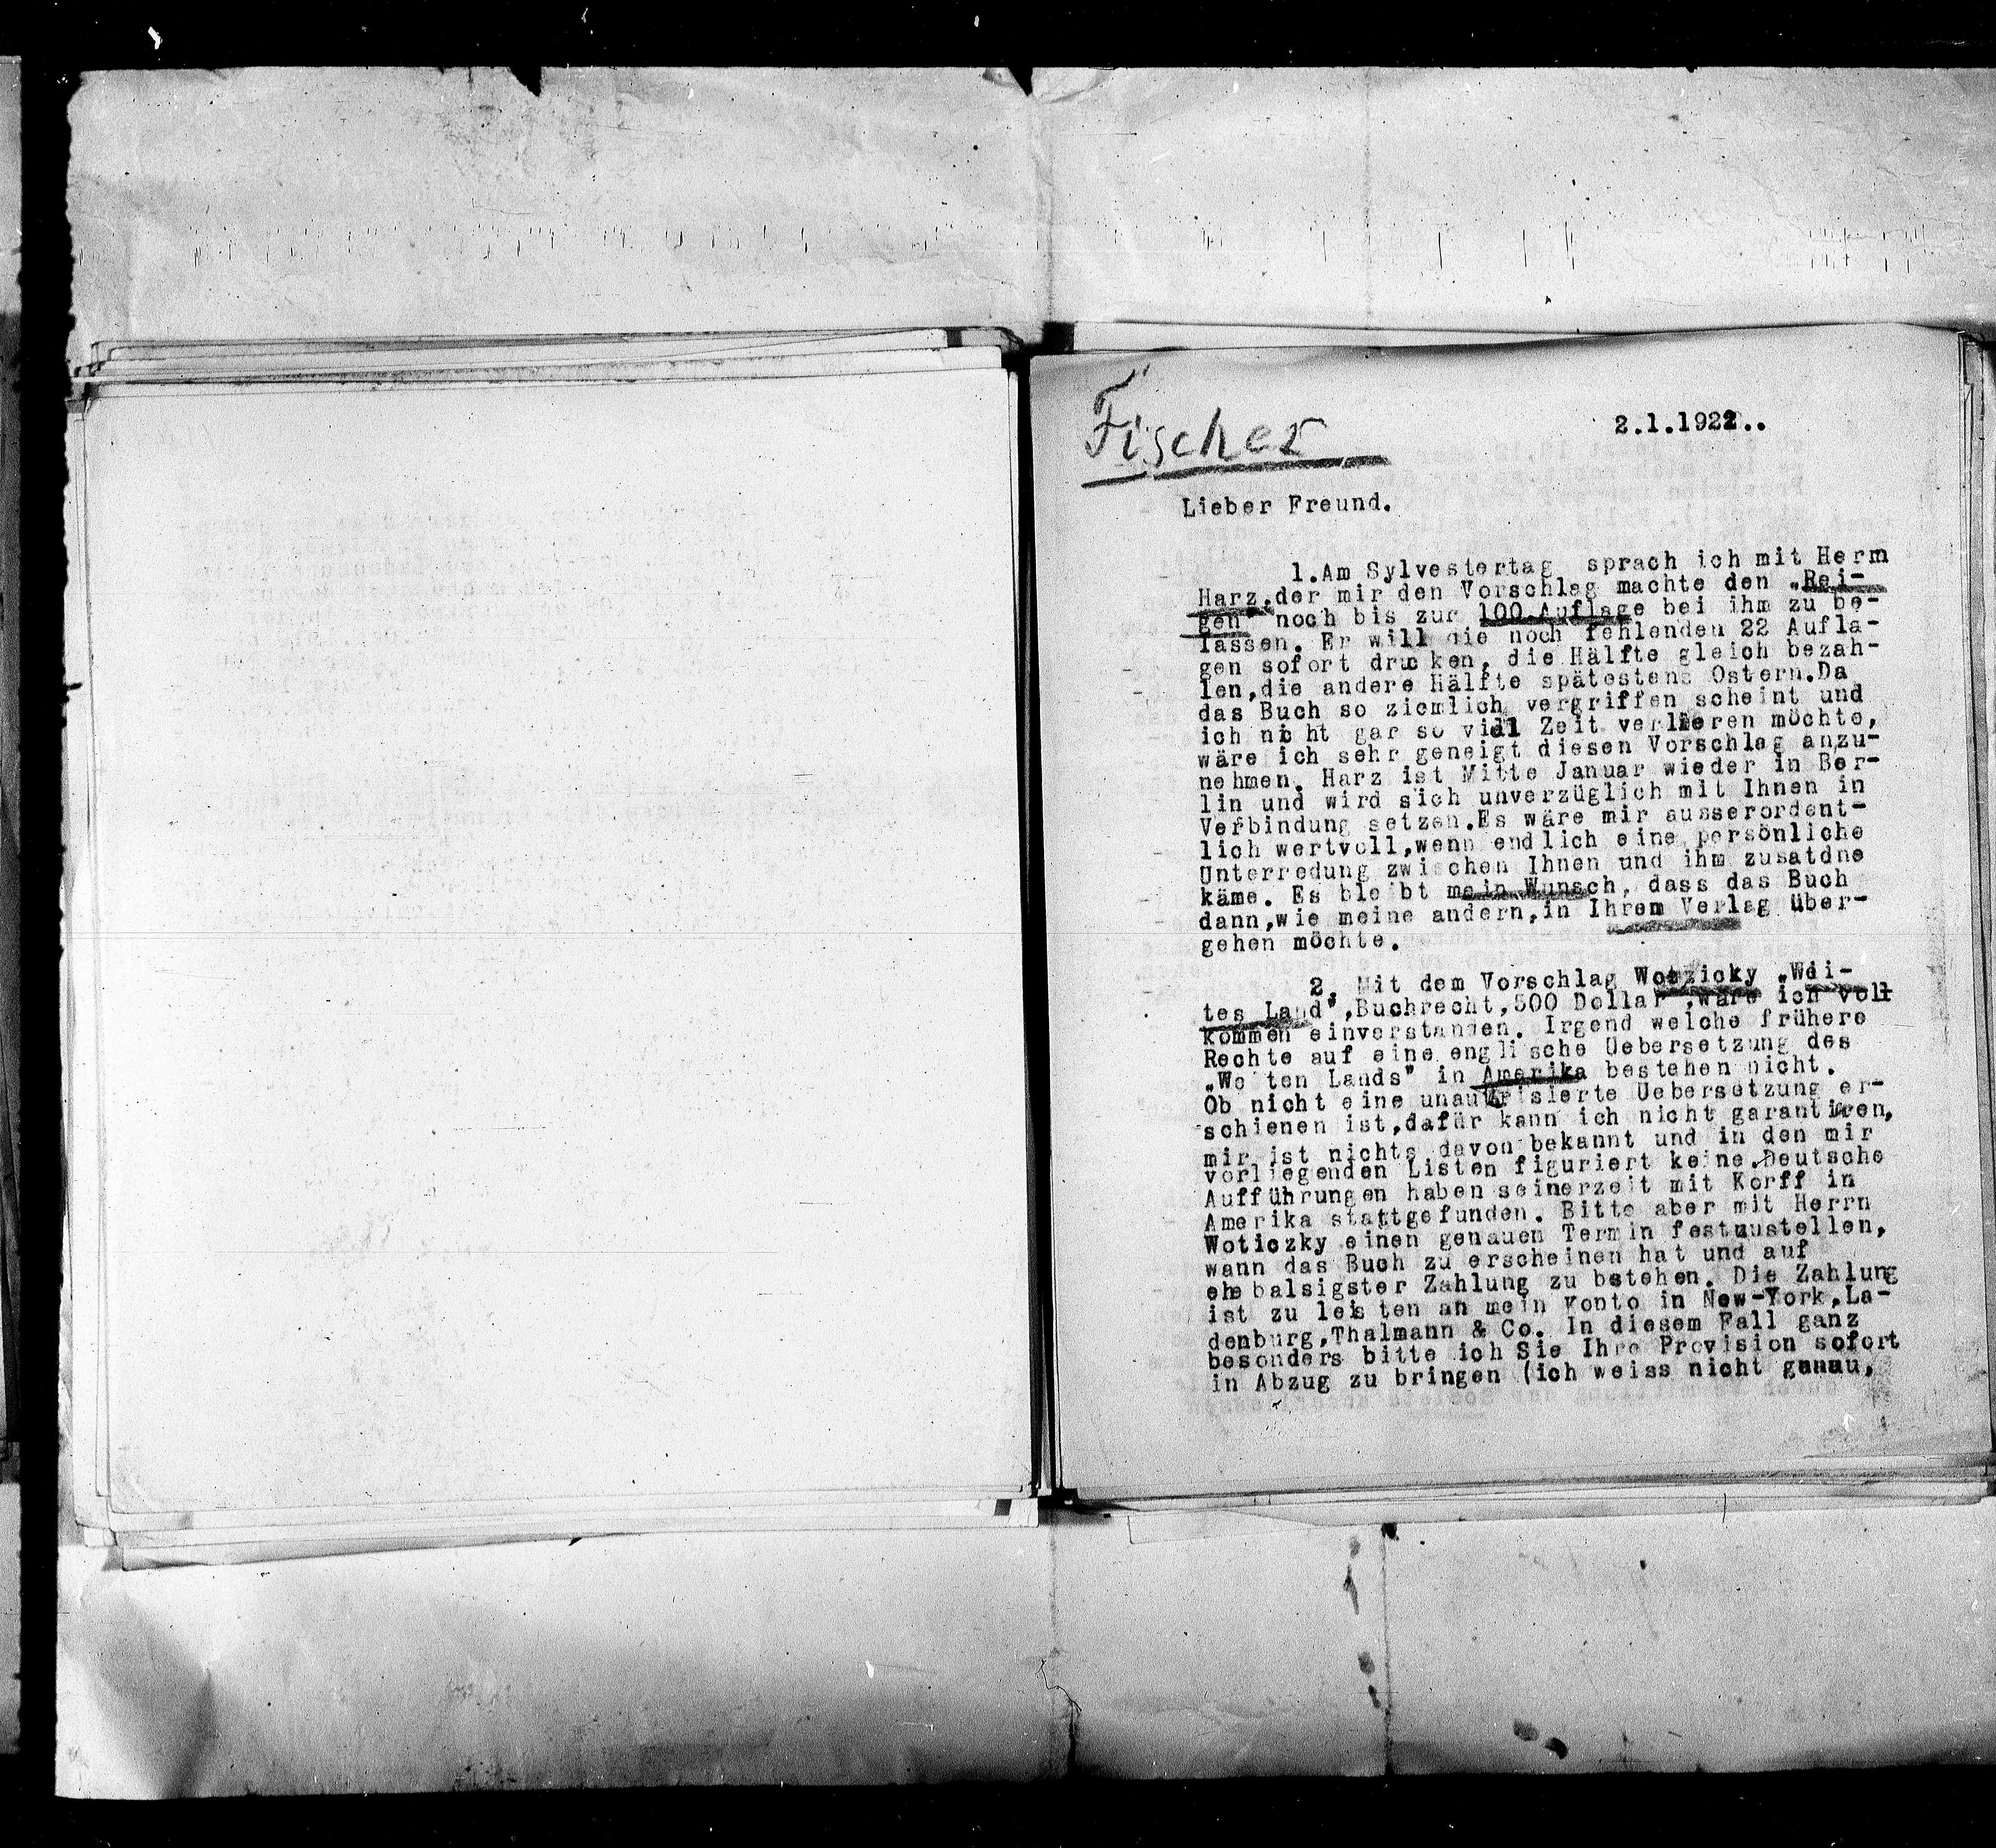 Fischer
2.1.1922..
Lieber Freund.
1.Am Sylvestertag sprach ich mit Herrn
Harz,der mir den Vorschlag machte den „Rei-
gen" noch bis zur 100.Auflage bei ihm zu be-
lassen. Er will die noch fehlenden 22 Aufla-
gen sofort drucken, die Hälfte gleich bezah-
len,die andere Hälfte spätestens Ostern.Da
das Buch so ziemlich vergriffen scheint und
ich nicht gar so viel Zeit verlieren möchte,
wäre ich sehr geneigt diesen Vorschlag anzu-
nehmen. Harz ist Mitte Januar wieder in Ber-
lin und wird sich unverzüglich mit Ihnen in
Verbindung setzen.Es wäre mir ausserordent-
lich wertvoll,wenn endlich eine persönliche
Unterredung zwischen Ihnen und ihm zusatdne
käme. Es bleibt mein Wunsch, dass das Buch
dann,wie meine andern,in Ihrem Verlag über-
gehen möchte.
2. Mit dem Vorschlag Wotzicky „Wei-
tes Land",Buchrecht,500 Dollar ,wäre ich voll
kommen einverstanden. Irgend welche frühere
Rechte auf eine englische Uebersetzung des
„Weiten Lands" in Amerika bestehen nicht.
Ob nicht eine unautorisierte Uebersetzung er-
schienen ist,dafür kann ich nicht garantieren,
mir ist nichts davon bekannt und in den mir
vorliegenden Listen figuriert keine.Deutsche
Aufführungen haben seinerzeit mit Korff in
Amerika stattgefunden. Bitte aber mit Herrn
Woticzky einen genauen Termin festzustellen,
wann das Buch zu erscheinen hat und auf
ehebalsigster Zahlung zu bstehen. Die Zahlung
ist zu leisten an mein Konto in New-York,La-
denburg,Thalmann & Co. In diesem Fall ganz
besonders bitte ich Sie Ihre Provision sofort
in Abzug zu bringen (ich weiss nicht genau,